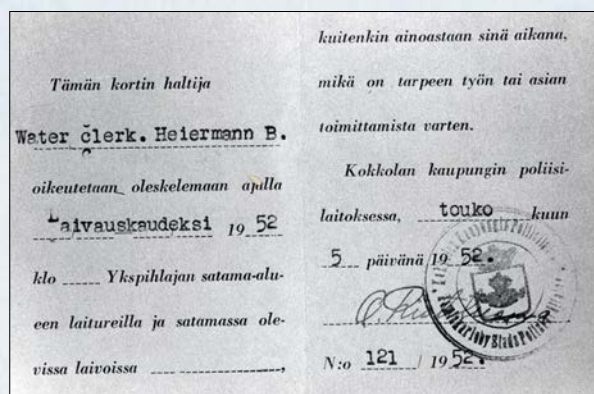 Tämän kortin haltija
Water člerk. Heiermann B.
oikeutetaan oleskelemaan ajalla
Laivauskaudeksi 19 52
klo ...... Ykspihlajan satama-alu-
een laitureilla ja satamassa ole-
vissa laivoissa ...... ..................,
kuitenkin ainoastaan sinä aikana,
mikä on tarpeen työn tai asian
toimittamista varten.
Kokkolan kaupungin poliisi-
laitoksessa, touko kuun
5 päivänä 19 52.
N:o 121 / 19 52.